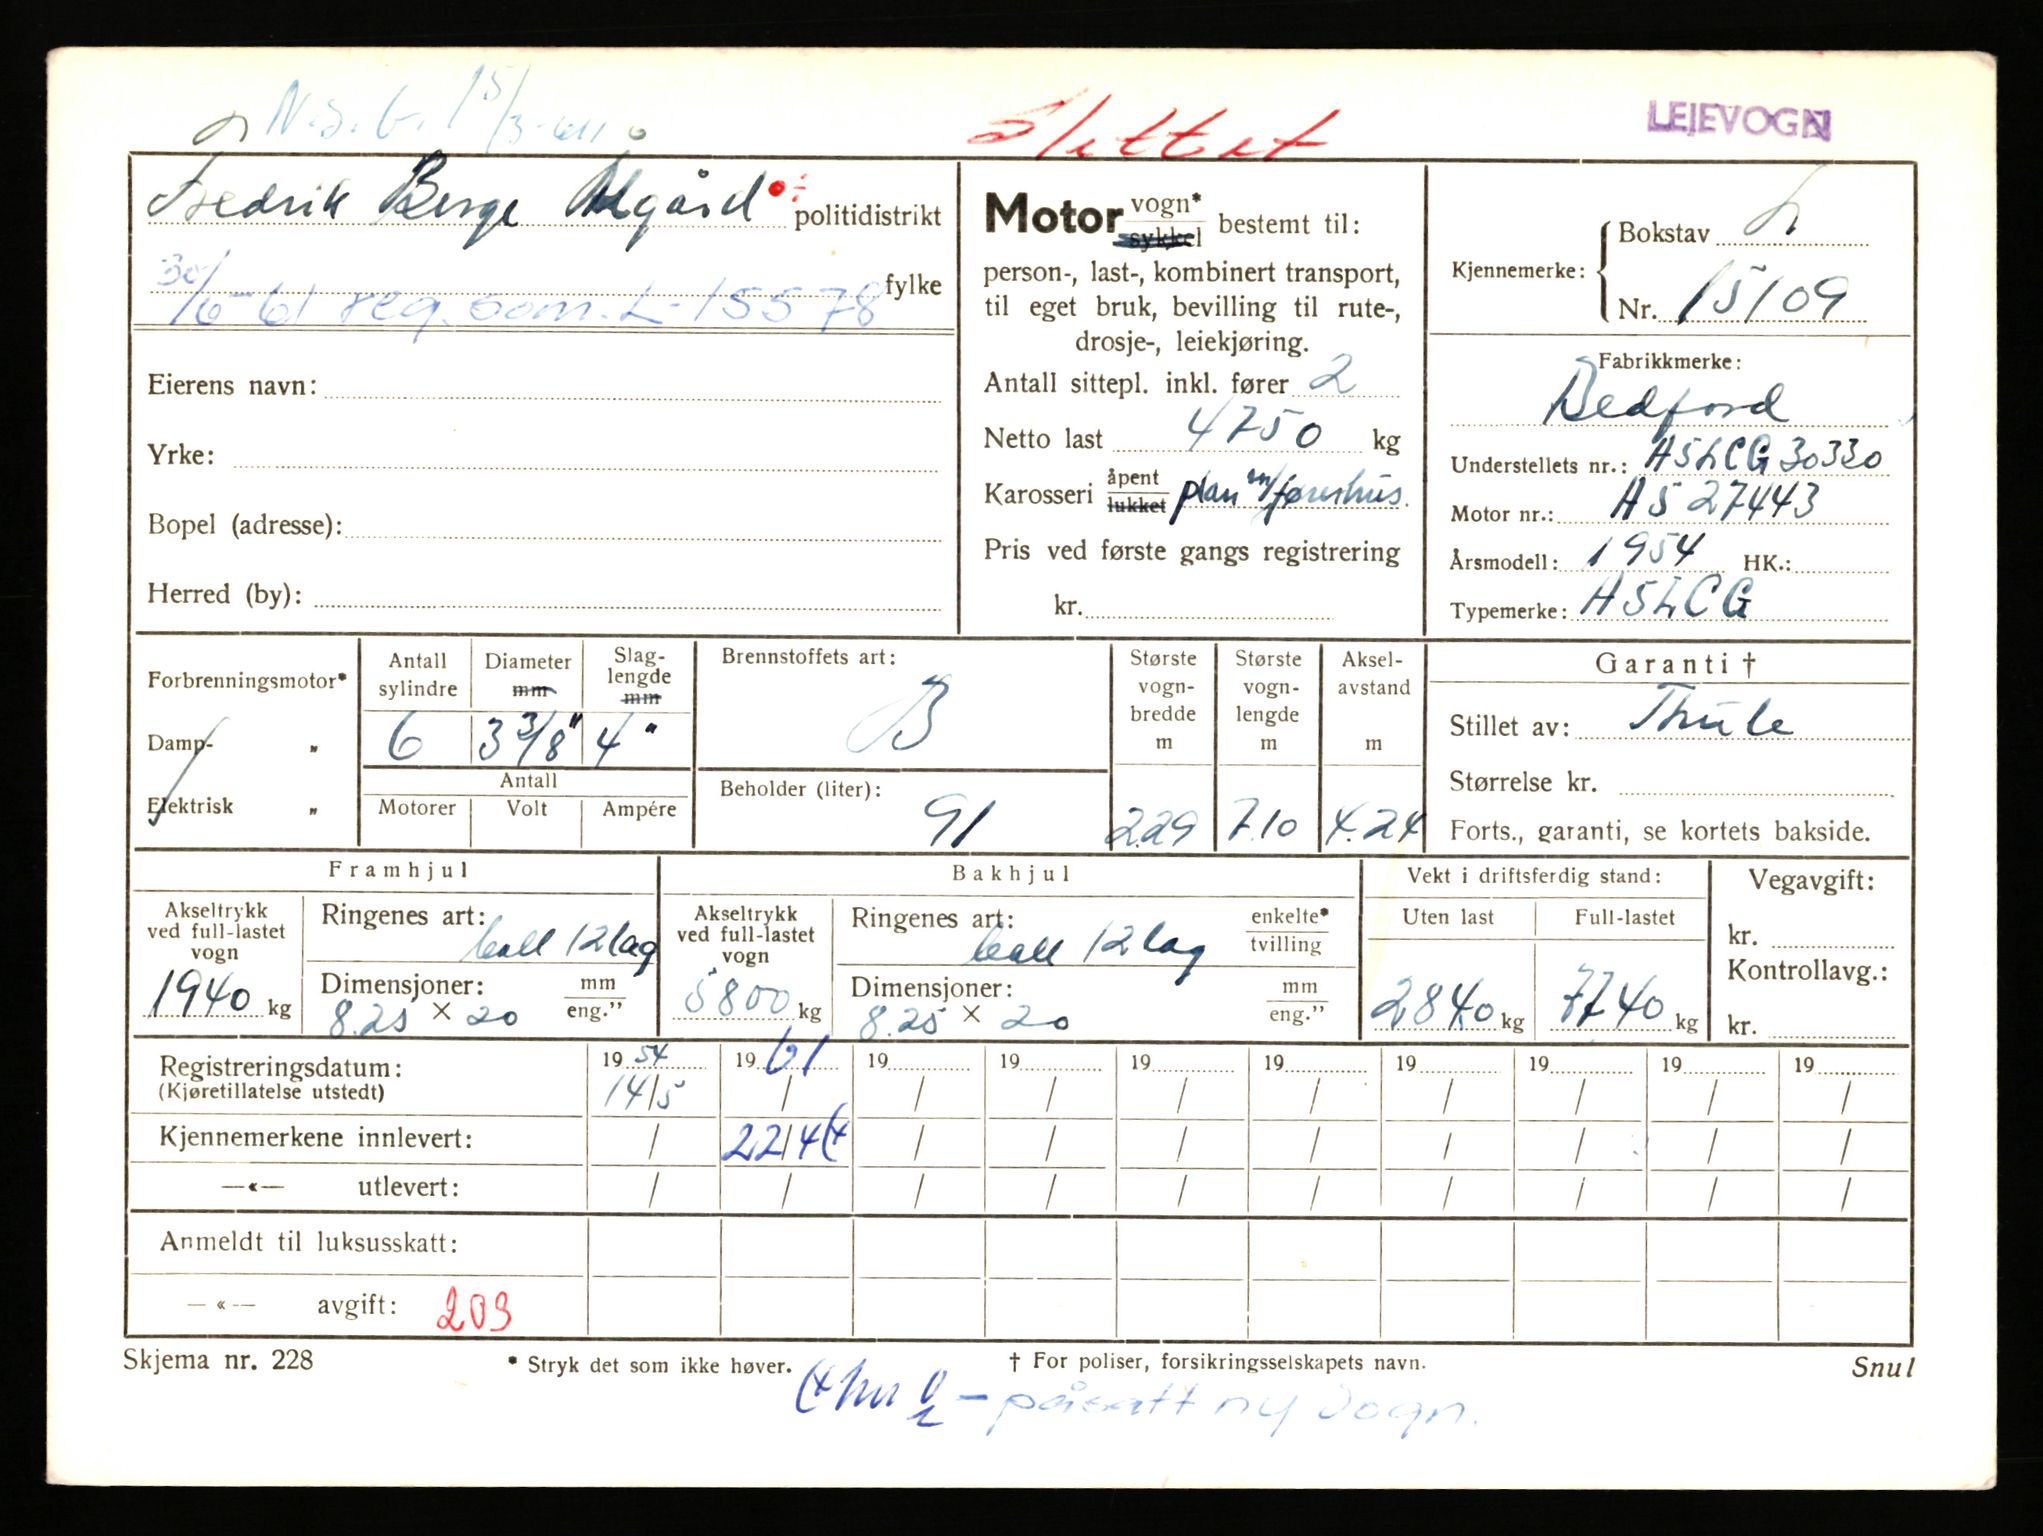 N.S.G. 15/3-61
Slettet
LEIEVOGN
Fredrik Berge Ålgård politidistrikt
30/6-61 reg. som. L-15578 fylke
Eierens navn:
Yrke:
Bopel (adresse):
Herred (by):
Motor vogn* sykkel bestemt til:
person-, last-, kombinert transport,
til eget bruk, bevilling til rute-,
drosje-, leiekjøring.
Antall sittepl. inkl. fører 2
Netto last 4750 kg
Karosseri åpent lukket plan m/førerhus.
Pris ved første gangs registrering
kr.
Kjennemerke: Bokstav L
Nr. 15109
Fabrikkmerke:
Bedford
Understellets nr.: A5LCG30330
Motor nr.: A5 27443
Årsmodell: 1954 HK.:
Typemerke: A5LCG
Forbrenningsmotor*
Damp- „
Elektrisk „
Antall sylindre Diameter mm Slaglengde mm
6 3 3/8" 4"
Antall
Motorer Volt Ampére
Brennstoffets art:
B
Beholder (liter):
91
Største vogn-bredde m 2.29
Største vogn-lengde m 7.10
Aksel-avstand m 4.24
Garanti †
Stillet av: Thule
Størrelse kr.
Forts., garanti, se kortets bakside.
Framhjul
Akseltrykk ved full-lastet vogn
1940 kg
Ringenes art: ball 12 lag
Dimensjoner: mm eng."
8.25 × 20
Bakhjul
Akseltrykk ved full-lastet vogn
5800 kg
Ringenes art: ball 12 lag enkelte* tvilling
Dimensjoner: mm eng."
8.25 × 20
Vekt i driftsferdig stand:
Uten last Full-lastet
2840 kg 7740 kg
Vegavgift:
kr.
Kontrollavg.:
kr.
Registreringsdatum: 19 54 19 61 19 19 19 19 19 19 19 19
(Kjøretillatelse utstedt) 14/5 / / / / / / / / /
Kjennemerkene innlevert: / 22/4 (x / / / / / / / /
—«— utlevert: / / / / / / / / / /
Anmeldt til luksusskatt:
—«— avgift: 203
Skjema nr. 228 * Stryk det som ikke høver. † For poliser, forsikringsselskapets navn. Snul
påsatt ny vogn.